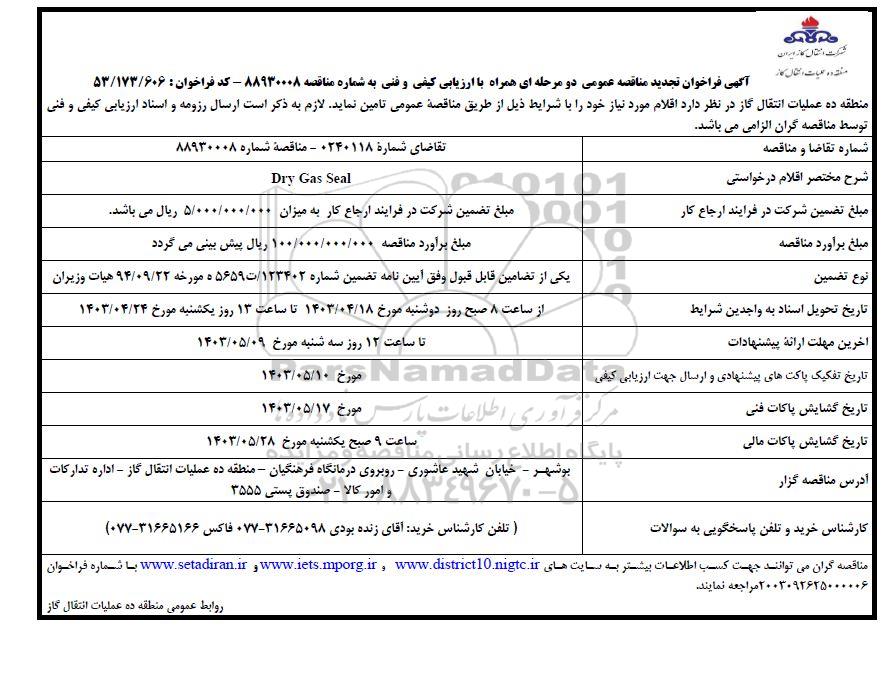 شرکت انتقال گاز ایران
منطقه ده عملیات انتقال گاز
آگهی فراخوان تجدید مناقصه عمومی دو مرحله ای همراه با ارزیابی کیفی و فنی به شماره مناقصه ۸۸۹۳۰۰۰۸ – کد فراخوان : ۵۳/۱۷۳/۶۰۶
منطقه ده عملیات انتقال گاز در نظر دارد اقلام مورد نیاز خود را با شرایط ذیل از طریق مناقصۀ عمومی تامین نماید. لازم به ذکر است ارسال رزومه و اسناد ارزیابی کیفی و فنی
توسط مناقصه گران الزامی می باشد.
شماره تقاضا و مناقصه
تقاضای شمارۀ ۰۲۴۰۱۱۸ – مناقصۀ شماره ۸۸۹۳۰۰۰۸
شرح مختصر اقلام درخواستی
Dry Gas Seal
مبلغ تضمین شرکت در فرایند ارجاع کار
مبلغ تضمین شرکت در فرایند ارجاع کار به میزان ۵/۰۰۰/۰۰۰/۰۰۰ ریال می باشد.
مبلغ برآورد مناقصه
مبلغ برآورد مناقصه ۱۰۰/۰۰۰/۰۰۰/۰۰۰ ریال پیش بینی می گردد
نوع تضمین
یکی از تضامین قابل قبول وفق آیین نامه تضمین شماره ۱۲۳۴۰۲/ت۵۶۵۹ ه مورخه ۹۴/۰۹/۲۲ هیات وزیران
تاریخ تحویل اسناد به واجدین شرایط
از ساعت ۸ صبح روز دوشنبه مورخ ۱۴۰۳/۰۴/۱۸ تا ساعت ۱۳ روز یکشنبه مورخ ۱۴۰۳/۰۴/۲۴
اخرین مهلت ارائۀ پیشنهادات
تا ساعت ۱۲ روز سه شنبه مورخ ۱۴۰۳/۰۵/۰۹
تاریخ تفکیک پاکت های پیشنهادی و ارسال جهت ارزیابی کیفی
مورخ ۱۴۰۳/۰۵/۱۰
تاریخ گشایش پاکات فنی
مورخ ۱۴۰۳/۰۵/۱۷
تاریخ گشایش پاکات مالی
ساعت ۹ صبح یکشنبه مورخ ۱۴۰۳/۰۵/۲۸
آدرس مناقصه گزار
بوشهر - خیابان شهید عاشوری – روبروی درمانگاه فرهنگیان – منطقه ده عملیات انتقال گاز - اداره تدارکات
و امور کالا - صندوق پستی ۳۵۵۵
کارشناس خرید و تلفن پاسخگویی به سوالات
( تلفن کارشناس خرید: آقای زنده بودی ۳۱۶۶۵۰۹۸-۰۷۷ فاکس ۳۱۶۶۵۱۶۶-۰۷۷)
مناقصه گران می توانند جهت کسب اطلاعات بیشتر به سایت های www.district10.nigtc.ir و www.iets.mporg.ir و www.setadiran.ir با شماره فراخوان
۲۰۰۳۰۹۲۶۲۵۰۰۰۰۰۶ مراجعه نمایند.
روابط عمومی منطقه ده عملیات انتقال گاز
ParsNamadData
مرکز فرآوری اطلاعات پارس نماد داده ها
پایگاه اطلاع رسانی مناقصه و مزایده
۰۲۱-۸۸۳۴۹۶۷۰-۵